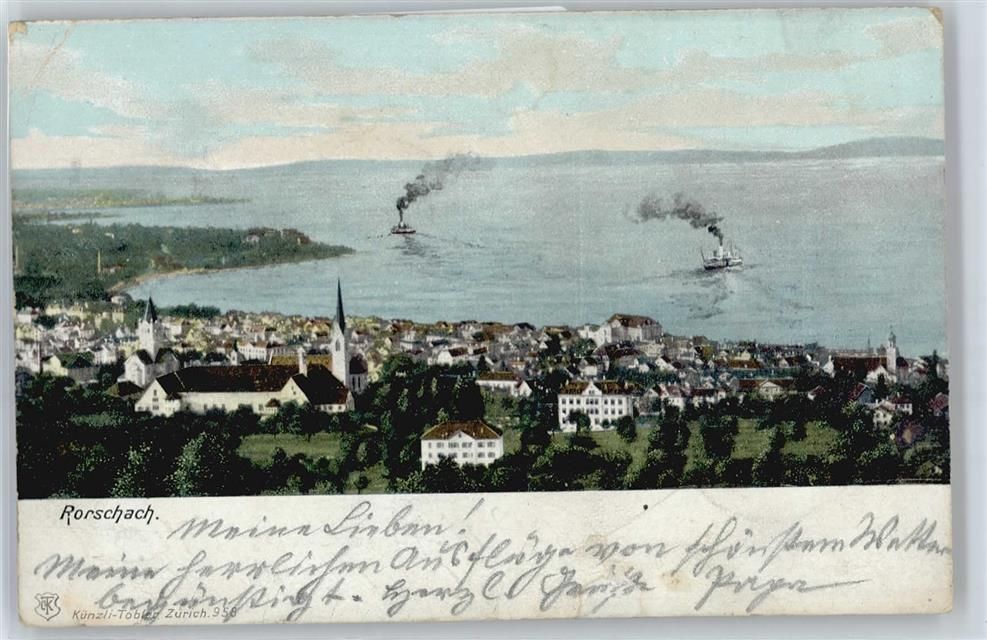 Rorschach.
Meine Lieben!
Meine herrlichen Ausflüge von schönstem Wetter
begünstigt. Herzl. Grüße Papa
Künzli-Tobler Zürich. 958